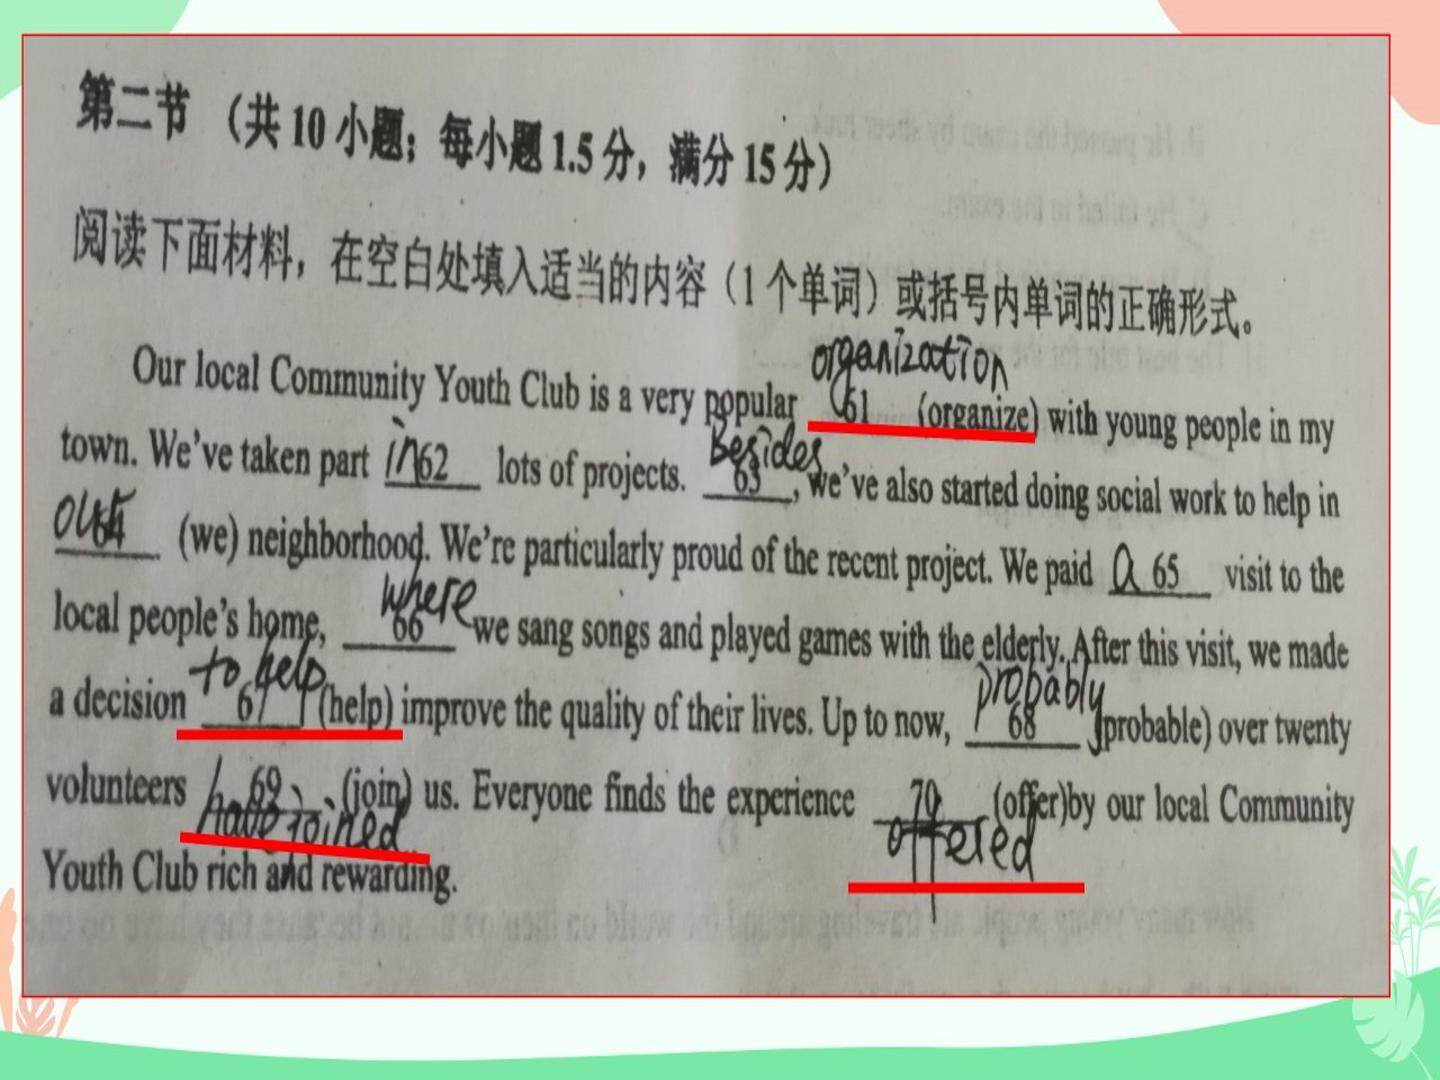 第二节 （共 10 小题；每小题 1.5 分，满分 15 分）
阅读下面材料，在空白处填入适当的内容（1 个单词）或括号内单词的正确形式。
organization
Our local Community Youth Club is a very popular 61 (organize) with young people in my
town. We've taken part in 62 lots of projects. Besides 63 , we've also started doing social work to help in
our 64 (we) neighborhood. We're particularly proud of the recent project. We paid a 65 visit to the
local people's home, where 66 we sang songs and played games with the elderly. After this visit, we made
a decision to help 67 (help) improve the quality of their lives. Up to now, probably 68 (probable) over twenty
volunteers 69 (join) us. Everyone finds the experience 70 (offer)by our local Community
have joined offered
Youth Club rich and rewarding.